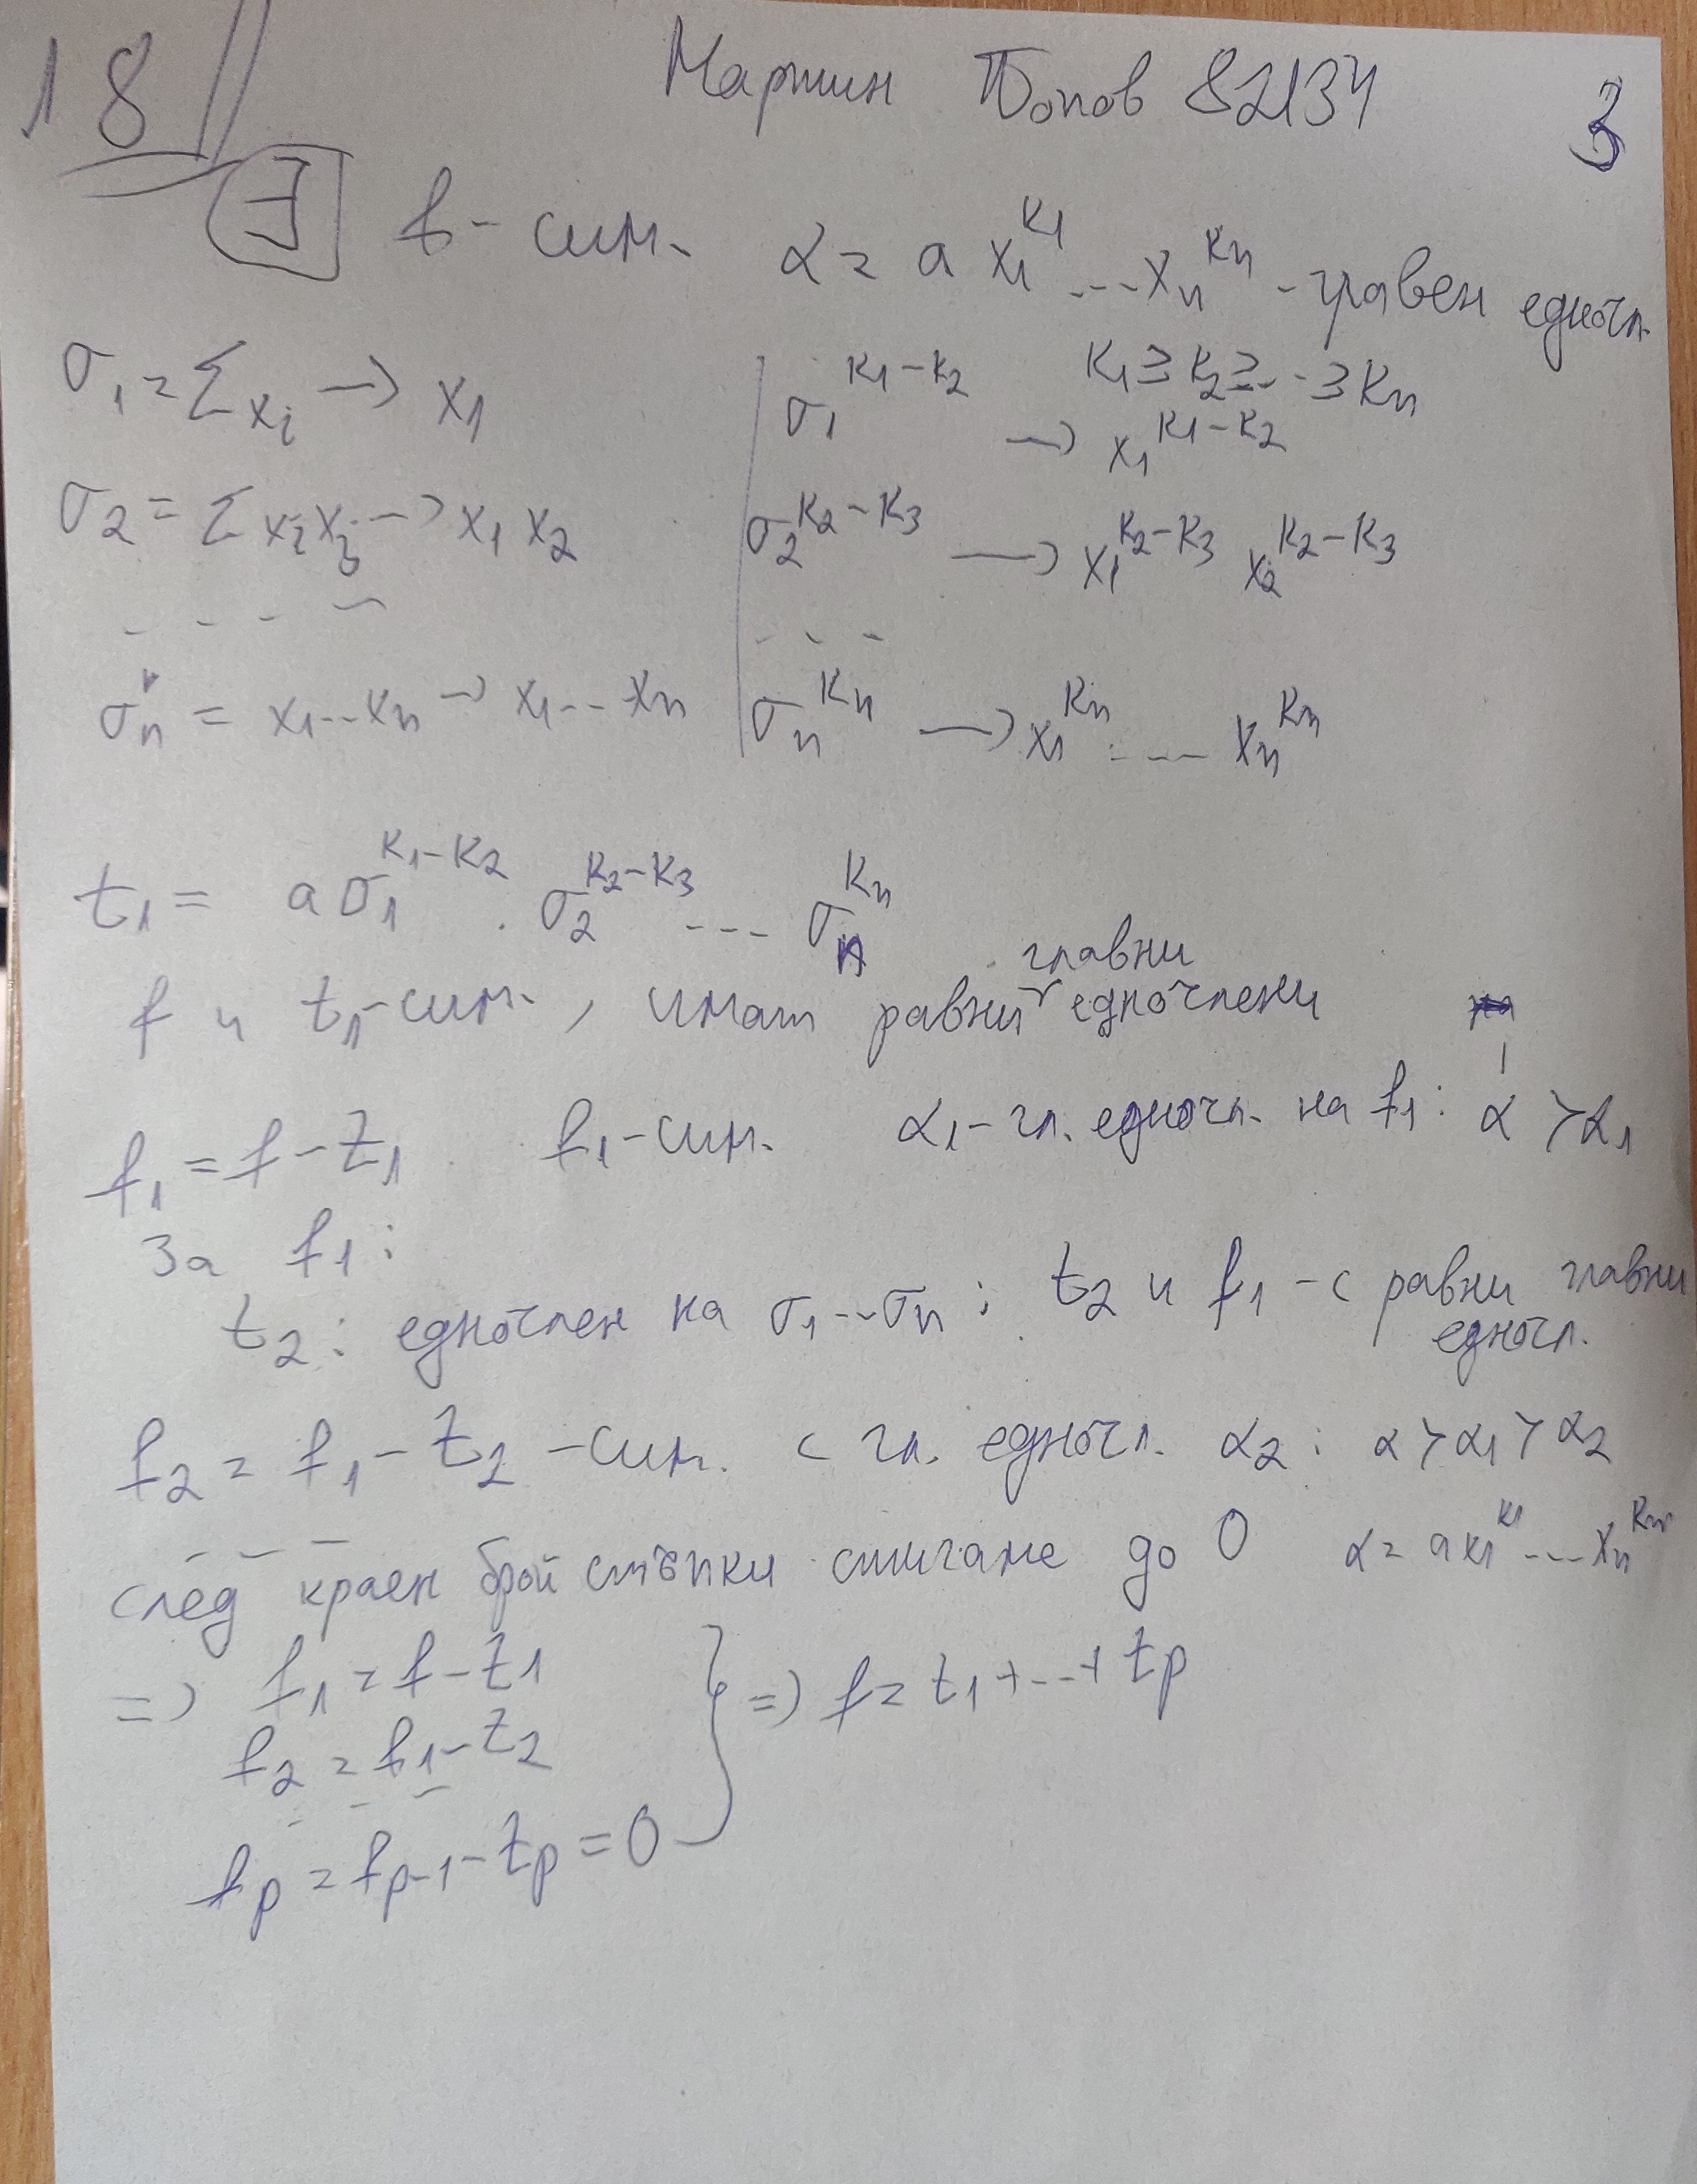 18 Мартин Попов 82134 3
∃ f - сим. α = a x₁^k₁ ... xₙ^kₙ - главен едночл.
σ₁ = Σ xᵢ → x₁ | σ₁^(k₁-k₂) → x₁^(k₁-k₂) k₁ ≥ k₂ ≥ ... ≥ kₙ
σ₂ = Σ xᵢxⱼ → x₁ x₂ | σ₂^(k₂-k₃) → x₁^(k₂-k₃) x₂^(k₂-k₃)
- - - - | - - -
σₙ = x₁...xₙ → x₁...xₙ | σₙ^kₙ → x₁^kₙ ... xₙ^kₙ
t₁ = a σ₁^(k₁-k₂) . σ₂^(k₂-k₃) ... σₙ^kₙ
f и t₁-сим., имат равни главни едночлени
f₁ = f - t₁ f₁-сим. α₁-гл. едночл. на f₁: α > α₁
За f₁:
t₂: едночлен на σ₁...σₙ: t₂ и f₁ - с равни главни
едночл.
f₂ = f₁ - t₂ - сим. с гл. едночл. α₂: α > α₁ > α₂
- - -
след краен брой стъпки стигаме до 0 α = a x₁^k₁ ... xₙ^kₙ
=> f₁ = f - t₁
f₂ = f₁ - t₂ } => f = t₁ + ... + tₚ
- - -
fₚ = fₚ₋₁ - tₚ = 0